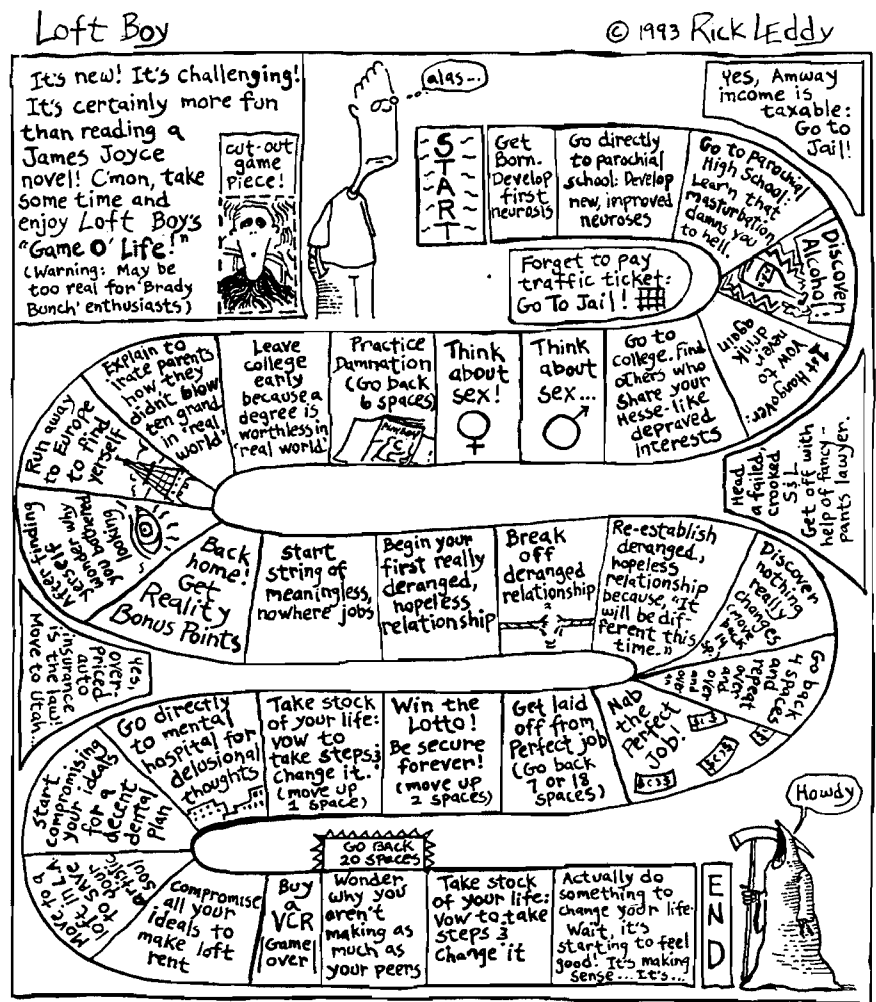 Loft Boy
© 1993 Rick Leddy
It's new! It's challenging!
It's certainly more fun
than reading a
James Joyce
novel! C'mon, take
some time and
enjoy Loft Boy's
"Game O' Life!"
(Warning: May be
too real for 'Brady
Bunch' enthusiasts)
cut-out
game
piece!
alas...
START
Get
Born.
Develop
first
neurosis
Go directly
to parochial
school: Develop
new, improved
neuroses
Go to Parochial
High School:
Learn that
masturbation
damns you
to hell.
Yes, Amway
income is
taxable:
Go to
Jail!
Discover
Alcohol!
Forget to pay
traffic ticket:
Go To Jail!
1st Hangover:
Vow to
never
drink
again
Go to
college. Find
others who
share your
Hesse-like
depraved
interests
Think
about
sex...
Think
about
sex!
Practice
Damnation
(Go back
6 spaces)
Leave
college
early
because a
degree is
worthless in
'real world'
Explain to
irate parents
how they
didn't blow
ten grand
in 'real
world'
Run away
to Europe
to find
yerself
After finding
yerself
wonder why
you bothered
looking
Back
home!
Get
Reality
Bonus Points
Start
string of
meaningless,
nowhere jobs
Begin your
first really
deranged,
hopeless
relationship
Break
off
deranged
relationship
Re-establish
deranged,
hopeless
relationship
because, "It
will be dif-
ferent this
time."
Head
a failed,
crooked
S&L
Get off with
help of fancy-
pants lawyer.
Discover
nothing
really
changes
(move
back
14
sp.)
Go back
4 spaces
and
repeat
over
and
over
and
over...
Nab
the
Perfect
Job!
Get laid
off from
Perfect job
(Go back
7 or 18
spaces)
Win the
Lotto!
Be secure
forever!
(move up
2 spaces)
Take stock
of your life:
vow to
take steps &
change it.
(move up
1 space)
Go directly
to mental
hospital for
delusional
thoughts
Yes,
over-
priced
auto
insurance
is the law!
Move to Utah...
Start
compromising
your ideals
for a
decent
dental
plan
Move to a
loft in L.A.
to save
your
artistic
soul
Compromise
all your
ideals to
make loft
rent
Buy
a
VCR
(Game
over)
GO BACK
20 SPACES
Wonder
why you
aren't
making as
much as
your peers
Take stock
of your life:
Vow to take
steps &
change it
Actually do
something to
change your life.
Wait, it's
starting to feel
good! It's making
sense... It's...
END
Howdy